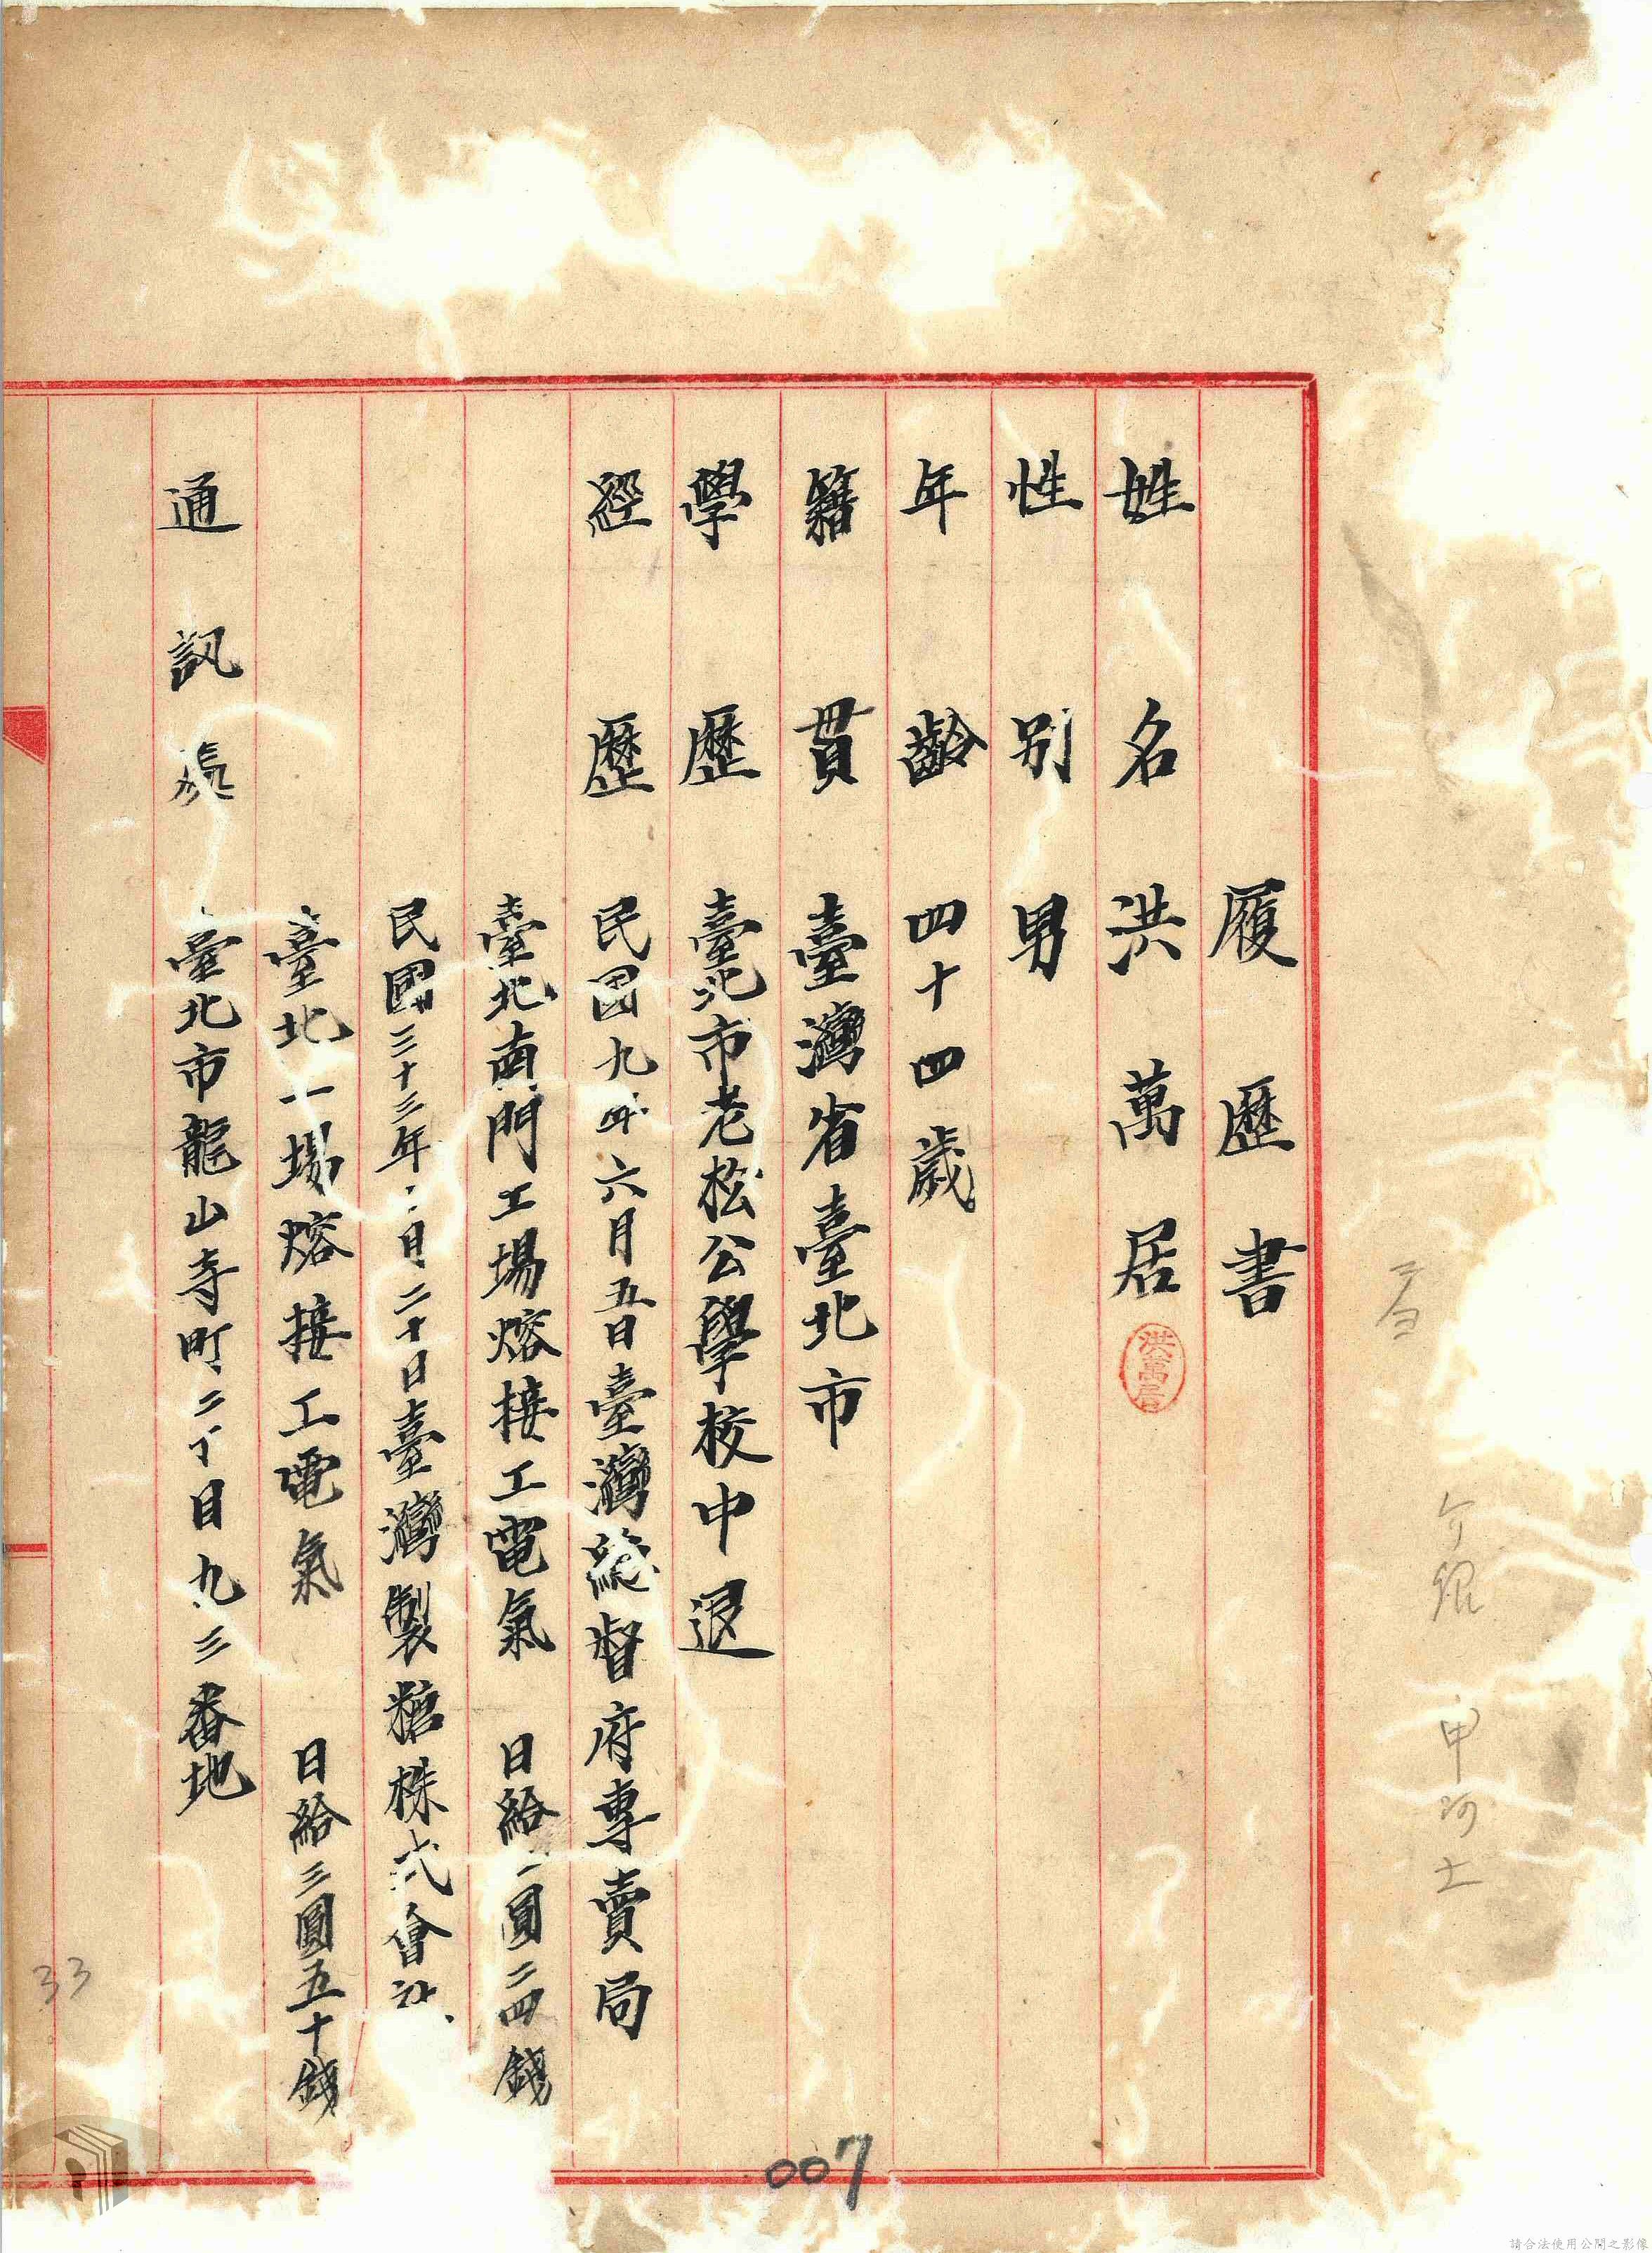 履歷書
姓名 洪萬居 洪萬居
性別 男
年齡 四十四歲
籍貫 臺灣省臺北市
學歷 臺北市老松公學校中退
經歷 民國九年六月五日臺灣總督府專賣局
臺北南門工場熔接工電氣 日給 圓二四錢
民國三十三年 月二十日臺灣製糖株式會社
臺北一場熔接工電氣 日給三圓五十錢
通訊處 臺北市龍山寺町二丁目九三番地
33
007
請合法使用公開之影像